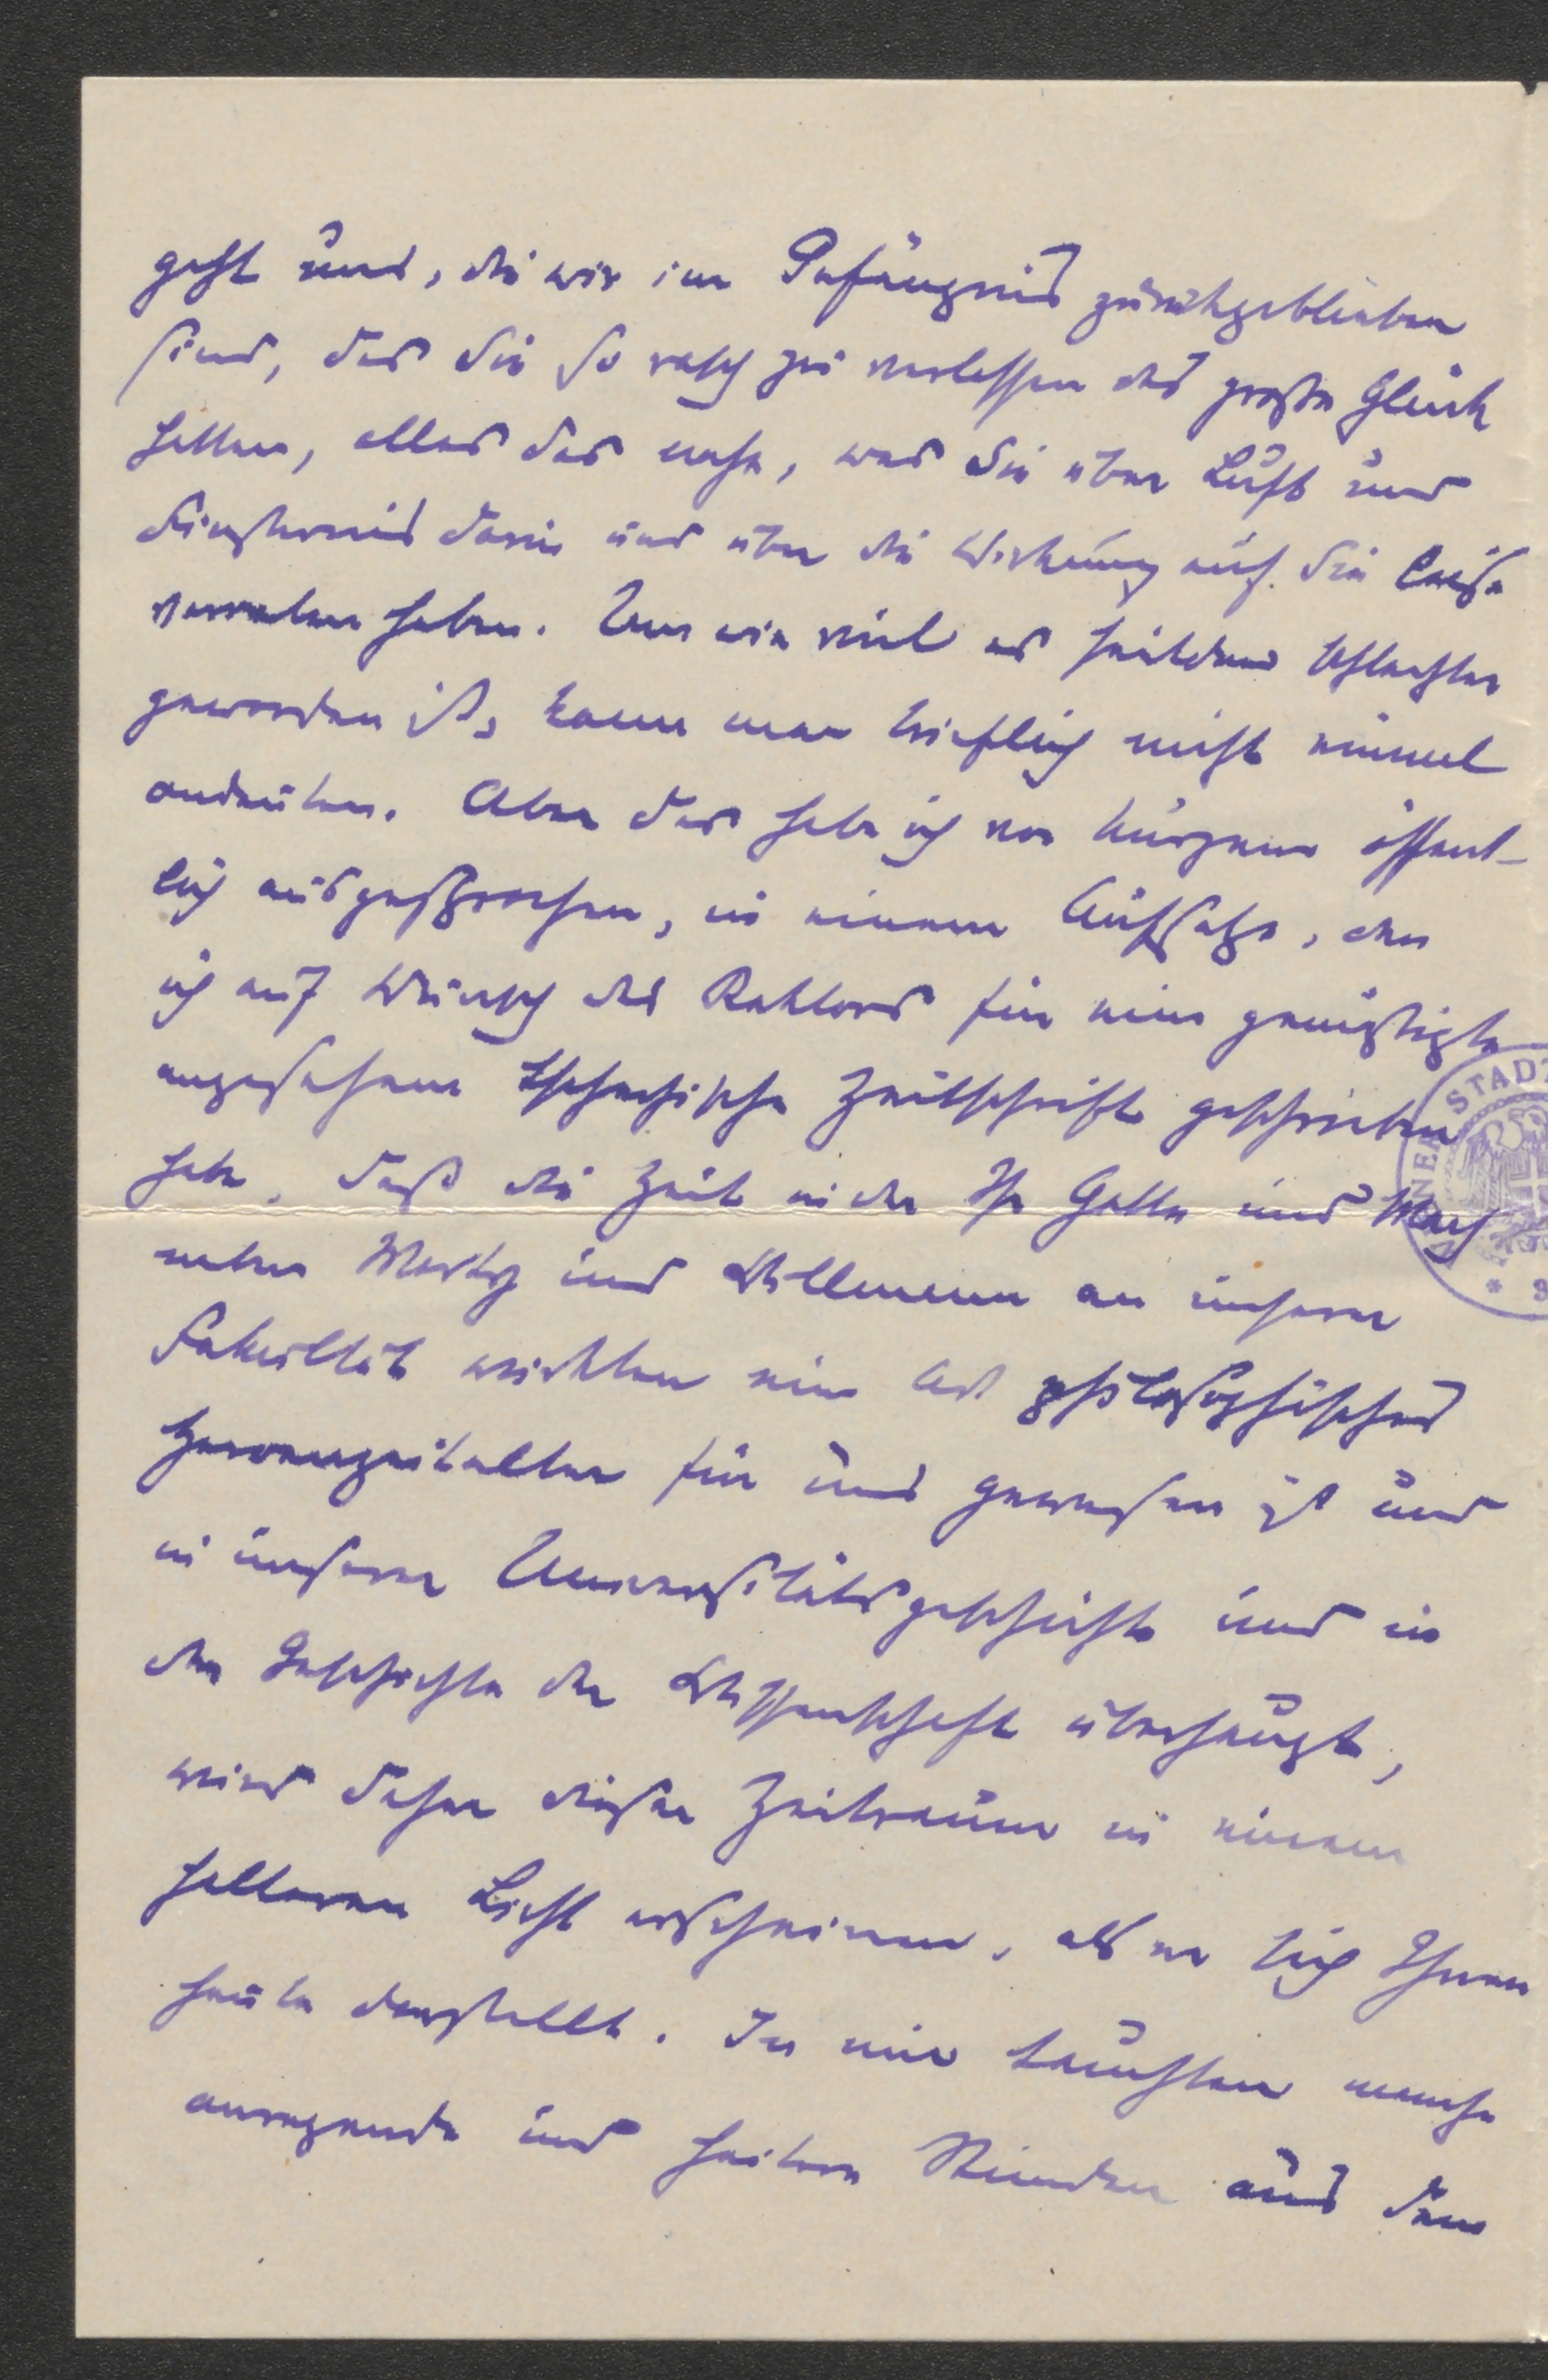 geht uns, die wir im Gefängnis zurückgeblieben
sind, das Sie so rasch zu verlassen das große Glück
hatten, alles das nahe, was Sie über Luft und
Finsternis darin und über die Wirkung auf Sie leise
verraten haben. Um wie viel es seitdem schlechter
geworden ist, kann man brieflich nicht einmal
andeuten. Aber das habe ich vor kurzem öffent-
lich ausgesprochen, in einem Aufsatze, den
ich auf Wunsch des Rektors für eine gemäßigte
angesehene tschechische Zeitschrift geschrieben
habe, daß die Zeit in der Ihr Gatte und Mach
neben Marty und Willmann an unserer
Fakultät wirkten eine Art philosophisches
Heroenzeitalter für uns gewesen ist und
in unserer Universitätsgeschichte und in
der Geschichte der Wissenschaft überhaupt,
wird daher dieser Zeitraum in einem
helleren Licht erscheinen, als er sich Ihnen
heute darstellt. In mir tauchten manche
anregende und heitere Stunden aus dem
STADT